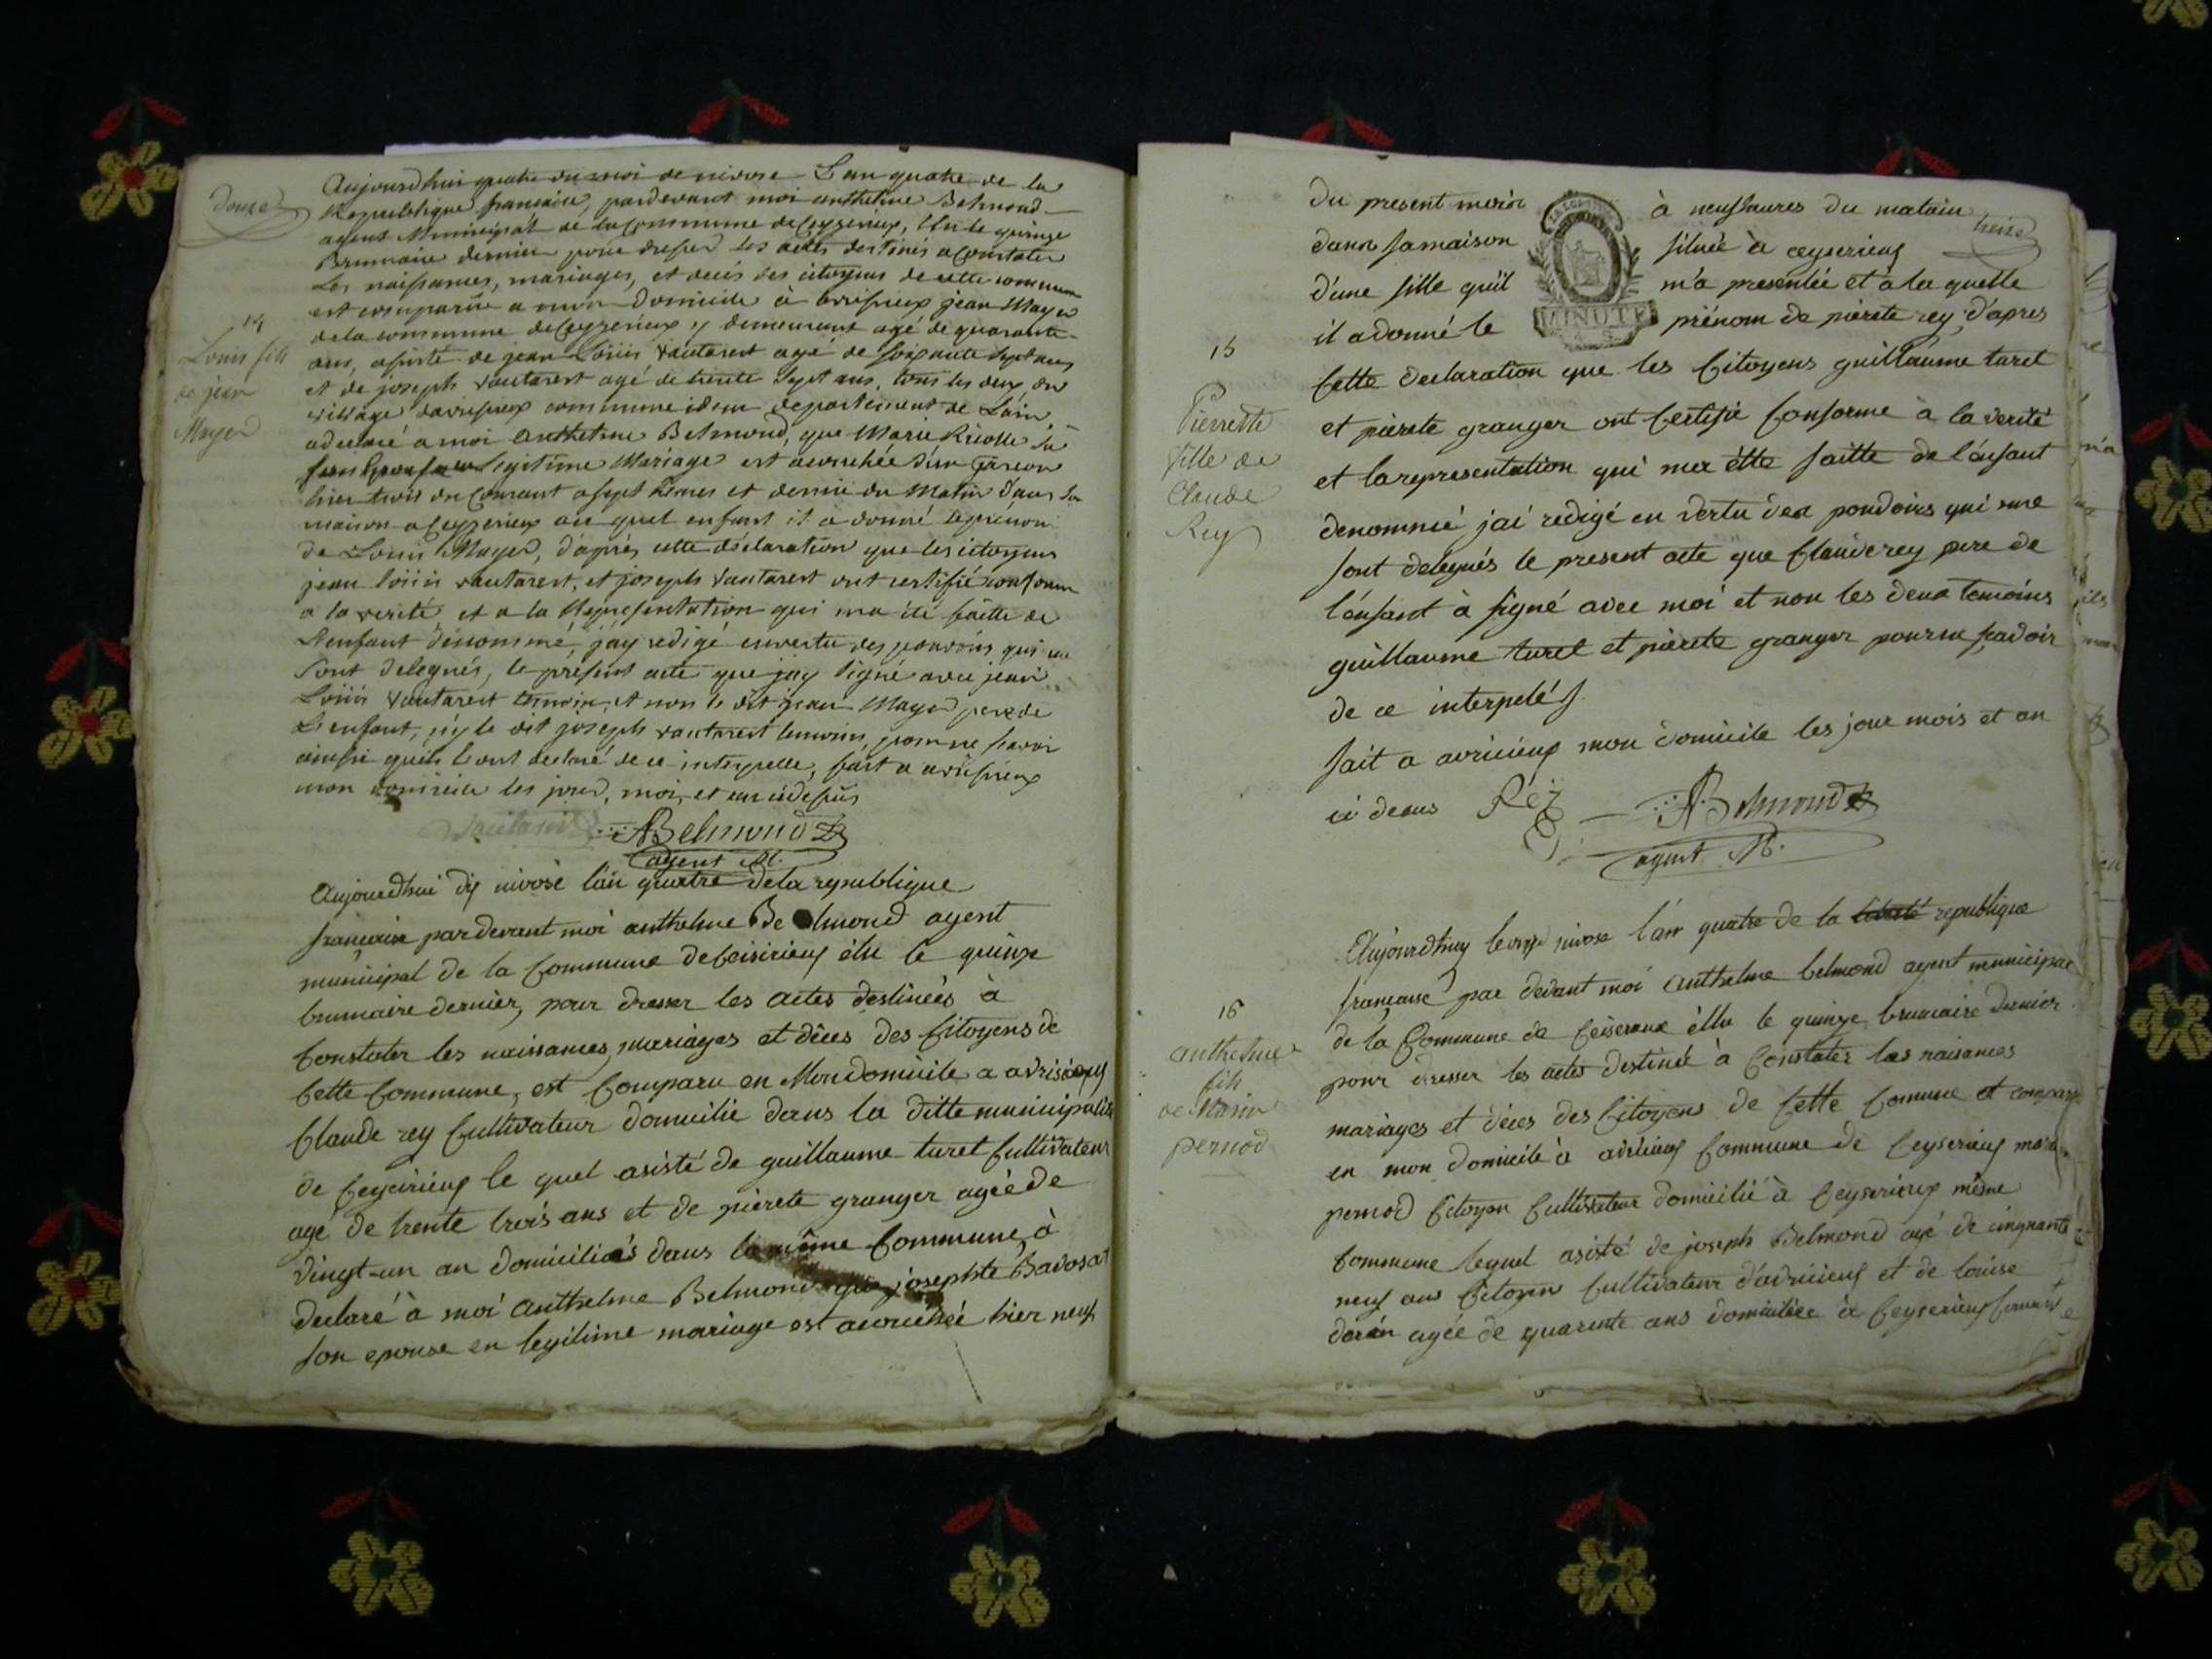 douze
Aujourdhui quatre du moi de nivose L'an quatre de la
Republique francaise, pardevant moi anthelme Belmond
agent Municipal de la commune de Ceyzerieux, Elu le quinze
Brumaire dernier pour dresser les actes destinés a constater
Les naissances, mariages, et decés des citoyens de cette commune
est comparue a mon domicile à avrissieux jean Mayer
de la commune de Ceyzerieux y demeurant agé de quarante
ans, assisté de jean Loüis vautaret agé de soixante sept ans
et de joseph vautaret agé de trente sept ans, tous les deux du
village davrissieux commune idem departement de Lain
a declaré a moi anthelme Belmond, que Marie Ricolle
son Epouse en Legitime Mariage est accouchée d'un garcon
hier trois du courant a sept heures et demie du Matin dans sa
maison a Ceyzerieux au quel enfant il a donné le prénom
de Louis Mayer, d'après cette déclaration que les citoyens
jean loüis vautaret, et joseph vautaret ont certifié conforme
a la verité, et a la Representation qui ma été faitte de
L'enfant dénommé, j'ay redigé en vertu des pouvoirs qui me
sont delegués, le présent acte que jay signé avec jean
Loüis vautaret temoin, et non le dit jean Mayer pere de
L'enfant, ny le dit joseph vautaret temoin, pour ne savoir
ainsi quils l'ont declaré de ce interpelle, fait a avrissieux
mon domicile les jour, moi, et an cidessus
14
Louis fils
de jean
Mayer
ABelmond
agent M.
Aujourdhui dix nivose l'an quatre de la republique
francaise pardevant moi anthelme Belmond agent
municipal de la Commune de Ceisirieux élu le quinze
brumaire dernier, pour dresser les actes destinées à
Constater les naissances, mariages et décès des Citoyens de
Cette Commune, est Comparu en Mon domicile a avrisieux
Claude rey Cultivateur domicilié dans la ditte municipalité
de Ceyzirieux le quel asisté de guillaume turet Cultivateur
agé de trente trois ans et de pierete granger agée de
vingt-un an domiciliés dans la même Commune, à
declaré à moi anthelme Belmond que josephte Bavosat
son epouse en legitime mariage est acouchée hier neuf
treize
du present mois à neuf heures du matain
dans sa maison située à ceyserieux
d'une fille qu'il m'a presentée et à la quelle
MINUTE
il a donné le prénom de pierete rey, d'apres
Cette declaration que les Citoyens guillaume turet
et pierete granger ont Certifié Conforme à la verité
et la representation qui ma étte faitte de l'énfant
denommé jai redigé en vertu des pouvoirs qui me
sont delegués le present acte que Claude rey pere de
l'énfant à signé avec moi et non les deux temoins
guillaume turet et pierete granger pour ne savoir
de ce interpelés
fait a avricieux mon domicile les jour mois et an
ci desus Réy ABelmond
agent M.
15
Pierrette
fille de
Claude
Rey
Aujourdhuy le onze nivose l'an quatre de la liberté republique
francaise par devant moi anthelme belmond agent municipal
de la Commune de Ceiserieux éllu le quinze brumaire dernier
pour dresser les actes destinée à Constater les naisances
mariages et décés des Citoyens de Cette Comune et comparu
en mon domicile à avricieux Commune de Ceyserieux marin
pernod Citoyen Cultivateur domicilié à Ceyserieux même
Commune lequel asisté de joseph Belmond agé de cinquante
neuf ans Citoyen Cultivateur d'avricieux et de louise
agée de quarente ans domiciliée à Ceyserieux
16
anthelme
fils
de Marin
pernod